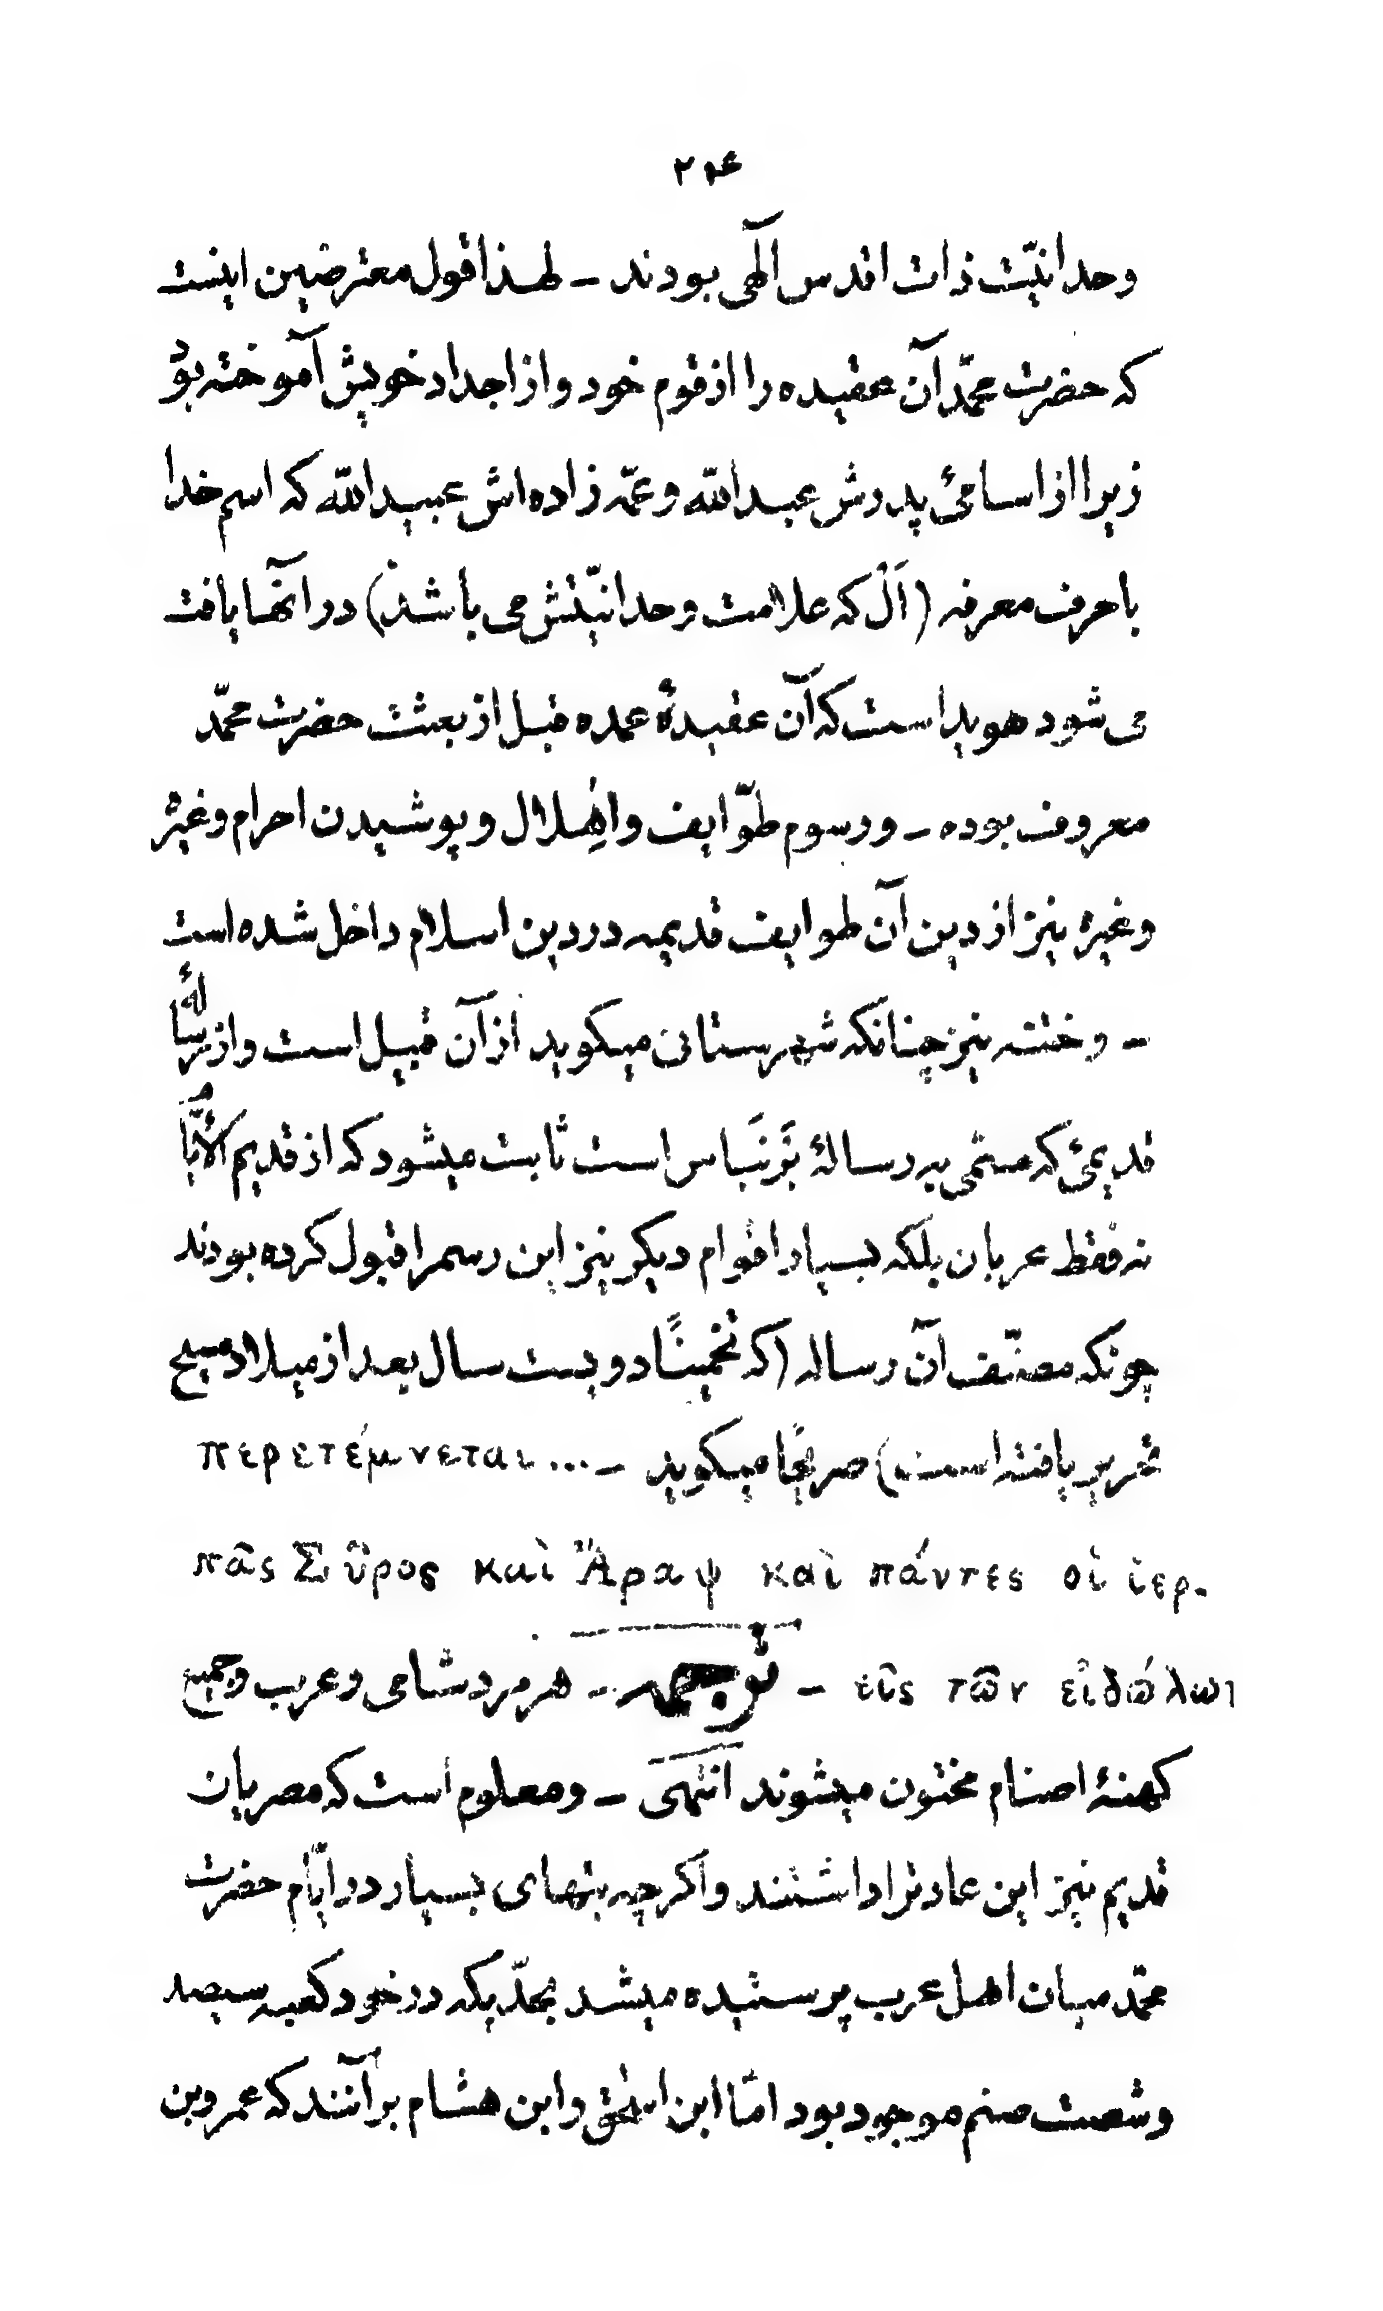 ۲۰۶
وحدانیّت ذات اقدس آلهی بودند – لهذا قول معترضین اینست
که حضرت محمّد آن عقیده را از قوم خود و از اجداد خویش آموخته بود
زیرا از اسامئ پدرش عبدالله و عمّه زاده‌اش عبیدالله که اسم خدا
با حرف معرفه (اَلْ که علامت وحدانیّتش می باشد) در آنها یافت
می شود هویداست که آن عقیدهٔ عمده قبل از بعثت حضرت محمّد
معروف بوده – و رسوم طوّایف و اِهْلال و پوشیدن احرام و غیره
و غیره نیز از دین آن طوایف قدیمه در دین اسلام داخل شده است
– و ختنه نیز چنانکه شهرستانی میکوید از آن قبیل است و از رسالهٔ
قدیمئ که مسمّی به رسالهٔ بَرْنَباس است ثابت میشود که از قدیم الأیّام
نه فقط عربان بلکه بسیار اقوام دیکر نیز این رسم را قبول کرده بودند
چونکه مصنّف آن رساله (که تخمینًا دویست سال بعد از میلاد مسیح
تحریر یافته است) صریحًا میکوید – ... περετέμνεται
πᾶς Σῦρος καὶ Ἄραψ καὶ πάντες οἱ ἱερ-
εῖς τῶν εἰδώλων – ترجمه – هر مرد شامی و عرب و جمیع
کهنهٔ اصنام مختون میشوند انتهی – و معلوم است که مصریان
قدیم نیز این عادت را داشتند و اکرچه بتهای بسیار در ایّام حضرت
محمّد میان اهل عرب پرستیده میشد بحدّیکه در خود کعبه سیصد
و شصت صنم موجود بود امّا ابن اسحٰق و ابن هشام بر آنند که عمرو بن